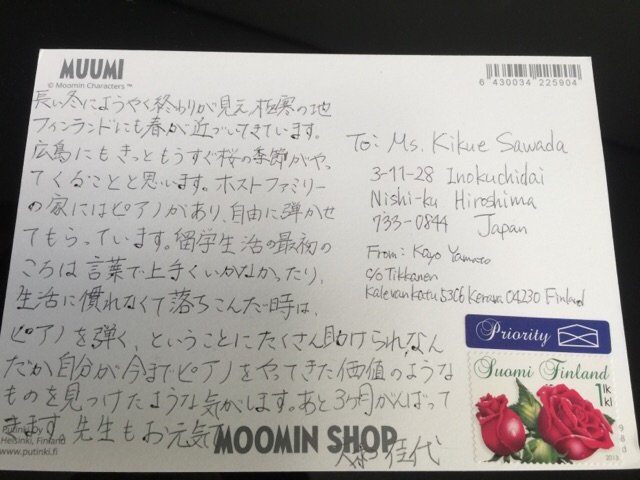 MUUMI
© Moomin Characters™
6 430034 225904
長い冬にようやく終わりが見え、極寒の地
フィンランドにも春が近づいてきています。
広島にもきっともうすぐ桜の季節がやっ
てくることと思います。ホストファミリー
の家にはピアノがあり、自由に弾かせ
てもらっています。留学生活の最初の
ころは言葉で上手くいかなかったり、
生活に慣れなくて落ちこんだ時は、
ピアノを弾く、ということにたくさん助けられ、なん
だか自分が今までピアノをやってきた価値のような
ものを見つけたような気がします。あと3ヶ月がんばって
きます。先生もお元気で
佳代
To: Ms. Kikue Sawada
3-11-28 Inokuchidai
Nishi-ku Hiroshima
733-0844 Japan
From: Kayo Yamato
c/o Tikkanen
Kalevankatu 5306 Kerava 04230 Finland
Priority
Suomi Finland
1 lk
kl
2013
Helsinki, Finland
www.putinki.fi
MOOMIN SHOP